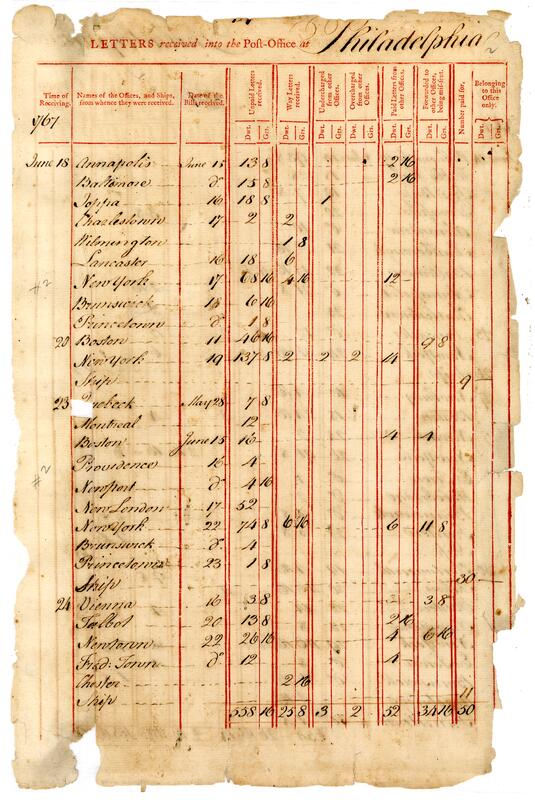 LETTERS received into the Post-Office at Philadelphia
Time of Receiving. Names of the Offices, and Ships, from whence they were received. Date of the Bills received. Unpaid Letters received. Way Letters received. Undercharged from other Offices. Overcharged from other Offices. Paid Letters from other Offices. Forwarded to other Offices, being mis-sent. Number paid for. Belonging to this Office only.
Dwt. Grs. Dwt. Grs. Dwt. Grs. Dwt. Grs. Dwt. Grs. Dwt. Grs. Dwt. Grs.
1767
June 18 Annapolis June 15 13 8 2 16
Baltimore do 15 8 2 16
Joppa 16 18 8 1
Charlestown 17 2 2
Wilmington 1 8
Lancaster 16 18 6
New York 17 68 16 4 16 12
Brunswick 18 6 16
Princetown do 1 8
20 Boston 11 46 16 9 8
New York 19 137 8 2 2 2 14
Ship 9
23 Quebeck May 28 7 8
Montreal 12
Boston June 15 16 4 4
Providence 16 4
Newport do 4 16
New London 17 52
New York 22 74 8 6 16 6 11 8
Brunswick do 4
Princetown 23 1 8
Ship 30
24 Vienna 16 3 8 3 8
Talbot 20 13 8 2 16
Newtown 22 26 16 4 6 16
Fred: Town do 12 4
Chester 2 16
Ship 11
558 16 25 8 3 2 52 34 16 50
#2
#2